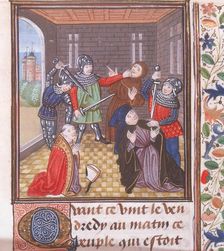 Quant ce vint le ven
dredy au matin ce
peuple qui estoit